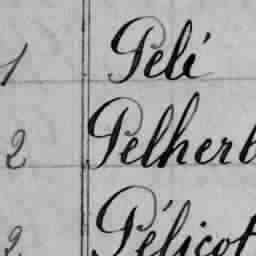 1 Pelé
2 Pelherb
2 Pélicot